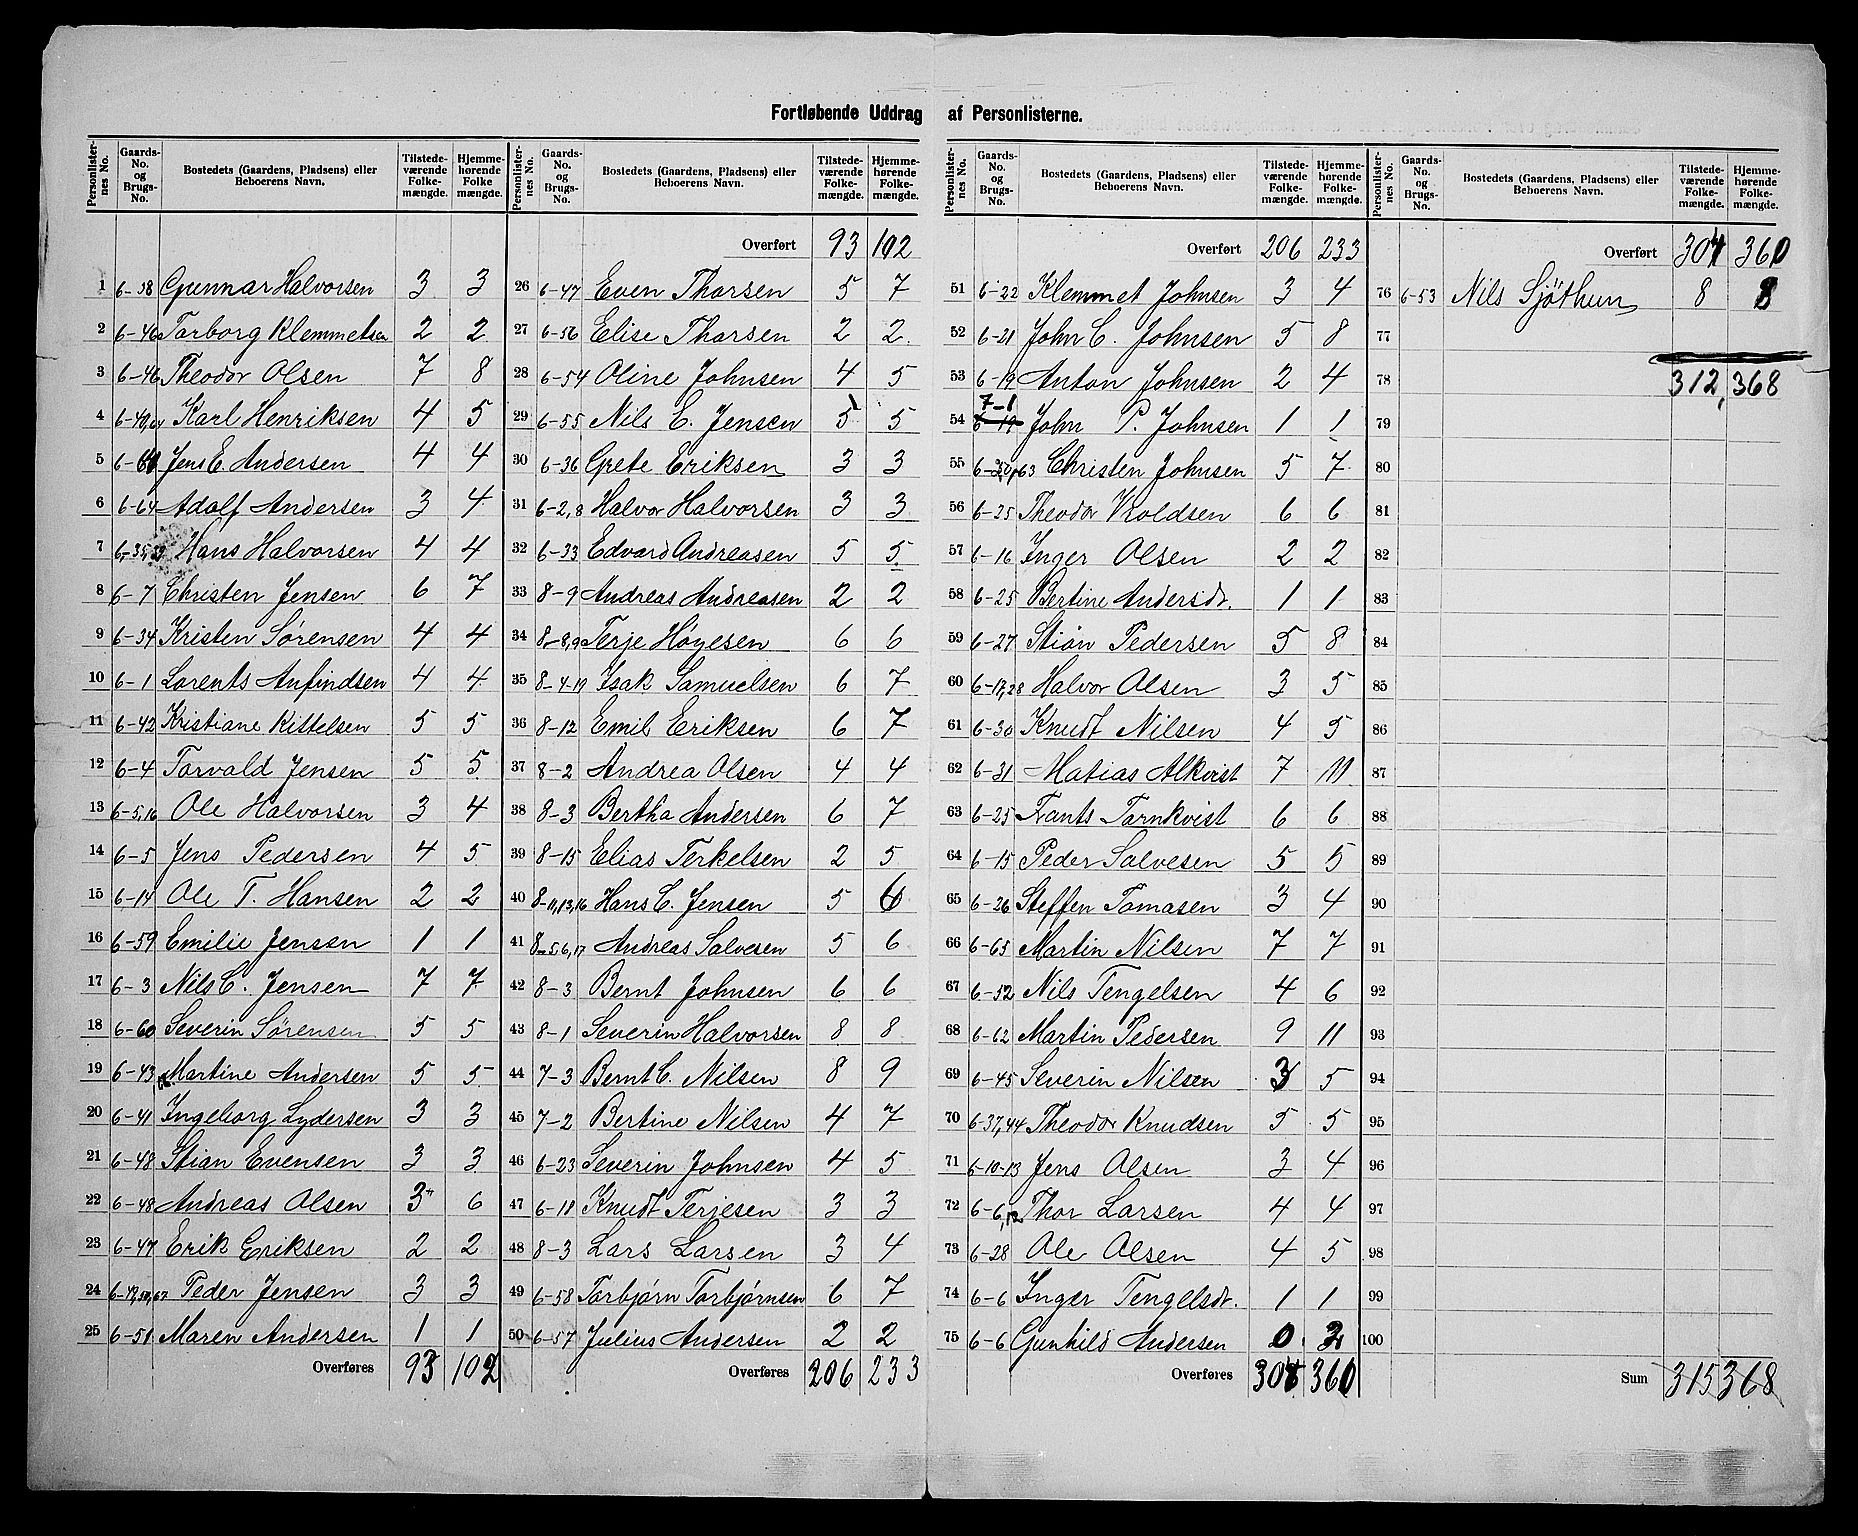 Fortløbende Uddrag af Personlisterne.
Personlister-nes No. | Gaards-No. og Brugs-No. | Bostedets (Gaardens, Pladsens) eller Beboerens Navn. | Tilstede-værende Folke-mængde. | Hjemme-hørende Folke mængde.
1 6-38 Gunnar Halvorsen 3 3
2 6-46 Torborg Klemmetsen 2 2
3 6-46 Theodor Olsen 7 8
4 6-40,64 Karl Henriksen 4 5
5 Jens E. Andersen 4 4
6 6-64 Adolf Andersen 3 4
7 Hans Halvorsen 4 4
8 6-7 Christen Jensen 6 7
9 6-34 Kristen Sørensen 4 4
10 6-1 Lorents Anfindsen 4 4
11 6-42 Kristiane Kittelsen 5 5
12 6-4 Torvald Jensen 5 5
13 6-5,16 Ole Halvorsen 3 4
14 6-5 Jens Pedersen 4 5
15 6-14 Ole T. Hansen 2 2
16 6-59 Emilie Jensen 1 1
17 6-3 Nils C. Jensen 7 7
18 6-60 Severin Sørensen 5 5
19 6-43 Martine Andersen 5 5
20 6-41 Ingeborg Lydersen 3 3
21 6-48 Stian Evensen 3 3
22 6-48 Andreas Olsen 3 6
23 6-47 Erik Eriksen 2 2
24 Peder Jensen 3 3
25 6-51 Maren Andersen 1 1
Overføres 93 102
Personlister-nes No. | Gaards-No. og Brugs-No. | Bostedets (Gaardens, Pladsens) eller Beboerens Navn. | Tilstede-værende Folke-mængde. | Hjemme-hørende Folke-mængde.
Overført 93 102
26 6-47 Even Thorsen 5 7
27 6-56 Elise Thorsen 2 2
28 6-54 Oline Johnsen 4 5
29 6-55 Nils E. Jensen 5 5
30 6-36 Grete Eriksen 3 3
31 6-2,8 Halvor Halvorsen 3 3
32 6-33 Edvard Andreasen 5 5
33 8-9 Andreas Andreasen 2 2
34 8-8,9 Terje Høyesen 6 6
35 8-4-19 Isak Samuelsen 6 7
36 8-12 Emil Eriksen 6 7
37 8-2 Andrea Olsen 4 4
38 8-3 Bertha Andersen 6 7
39 8-15 Elias Terkelsen 2 5
40 8-11,13,16 Hans C. Jensen 5 6
41 8-5,6,17 Andreas Salvesen 5 6
42 8-3 Bernt Johnsen 6 6
43 8-1 Severin Halvorsen 8 8
44 7-3 Bernt C. Nilsen 8 9
45 7-2 Bertine Nilsen 4 7
46 6-23 Severin Johnsen 4 5
47 6-18 Knudt Terjesen 3 3
48 8-3 Lars Larsen 3 4
49 6-58 Torbjørn Torbjørnsen 6 7
50 6-57 Julius Andersen 2 2
Overføres 206 233
Personlister-nes No. | Gaards-No. og Brugs-No. | Bostedets (Gaardens, Pladsens) eller Beboerens Navn. | Tilstede-værende Folke-mængde. | Hjemme-hørende Folke-mængde.
Overført 206 233
51 6-22 Klemmet Johnsen 3 4
52 6-21 John C. Johnsen 5 8
53 6-19 Anton Johnsen 2 4
54 7-1 John P. Johnsen 1 1
55 Christen Johnsen 5 7
56 6-25 Theodor Koldsen 6 6
57 6-16 Inger Olsen 2 2
58 6-25 Bertine Andersdt. 1 1
59 6-27 Stian Pedersen 5 8
60 6-17,28 Halvor Olsen 3 5
61 6-30 Knudt Nilsen 4 5
62 6-31 Matias Alkvist 7 11
63 6-25 Frants Tornkvist 6 6
64 6-15 Peder Salvesen 5 5
65 6-26 Steffen Tomasen 3 4
66 6-65 Martin Nilsen 7 7
67 6-32 Nils Tengelsen 4 6
68 6-62 Martin Pedersen 9 11
69 6-45 Severin Nilsen 3 5
70 6-37,44 Theodor Knudsen 5 5
71 6-10-13 Jens Olsen 3 4
72 6-6,12 Thor Larsen 4 4
73 6-28 Ole Olsen 4 5
74 6-6 Inger Tengelsdt. 1 1
75 6-6 Gunhild Andersen 0 2
Overføres 304 360
Personlister-nes No. | Gaards-No. og Brugs-No. | Bostedets (Gaardens, Pladsens) eller Beboerens Navn. | Tilstede-værende Folke-mængde. | Hjemme-hørende Folke-mængde.
Overført 304 360
76 6-53 Nils Sjöthun 8 8
77
78 312, 368
79
80
81
82
83
84
85
86
87
88
89
90
91
92
93
94
95
96
97
98
99
100
Sum 315 368